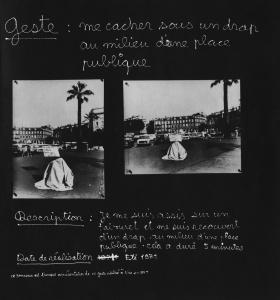 Geste : me cacher sous un drap
au milieu d'une place
publique
Description : Je me suis assis sur un
tabouret et me suis recouvert
d'un drap, au milieu d'une place
publique. cela a duré 5 minutes
Date de réalisation Eté 1972